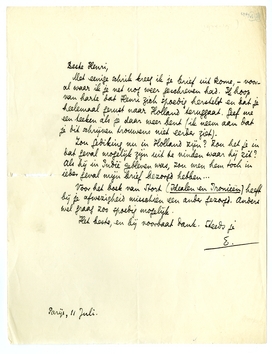 Beste Henri,
Met eenige schrik kreeg ik je brief uit Rome, – voor-
al waar ik je net nog weer geschreven had. Ik hoop
van harte dat Henri zich spoedig herstelt en dat je
heelemaal gerust naar Holland teruggaat. Geef me
een teeken als je daar weer bent (ik neem aan dat
je dit schrijven trouwens niet eerder ziet).
Zou Jobiking nu in Holland zijn? Zou het je in
dat geval mogelijk zijn uit te vinden waar hij zit?
Als hij in Indië gebleven was, zou men hem toch in
ieder geval mijn brief bezorgd hebben...
Voor het boek van Stort (Idealen en Ironieën) heeft
bij je afwezigheid misschien een ander gezorgd. Anders
wel graag zoo spoedig mogelijk.
Het beste, en bij voorbaat dank. Steeds je
E.
Parijs, 11 Juli.